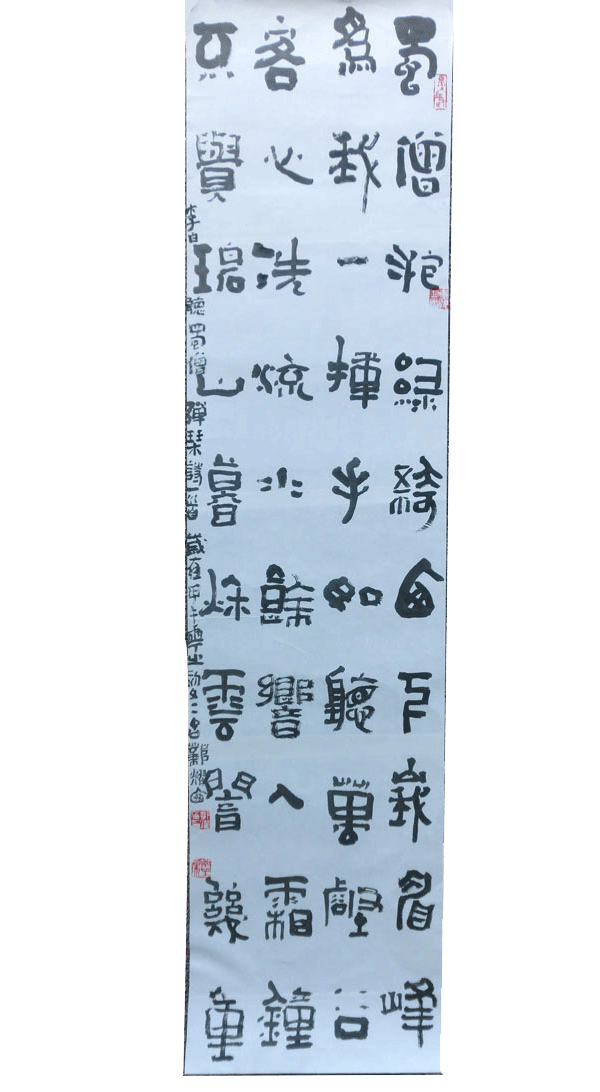 蜀僧抱綠綺西下峨眉峰
爲我一揮手如聽萬壑松
客心洗流水餘響入霜鐘
不覺碧山暮秋雲闇幾重
李白聽蜀僧彈琴詩一首歲在甲午